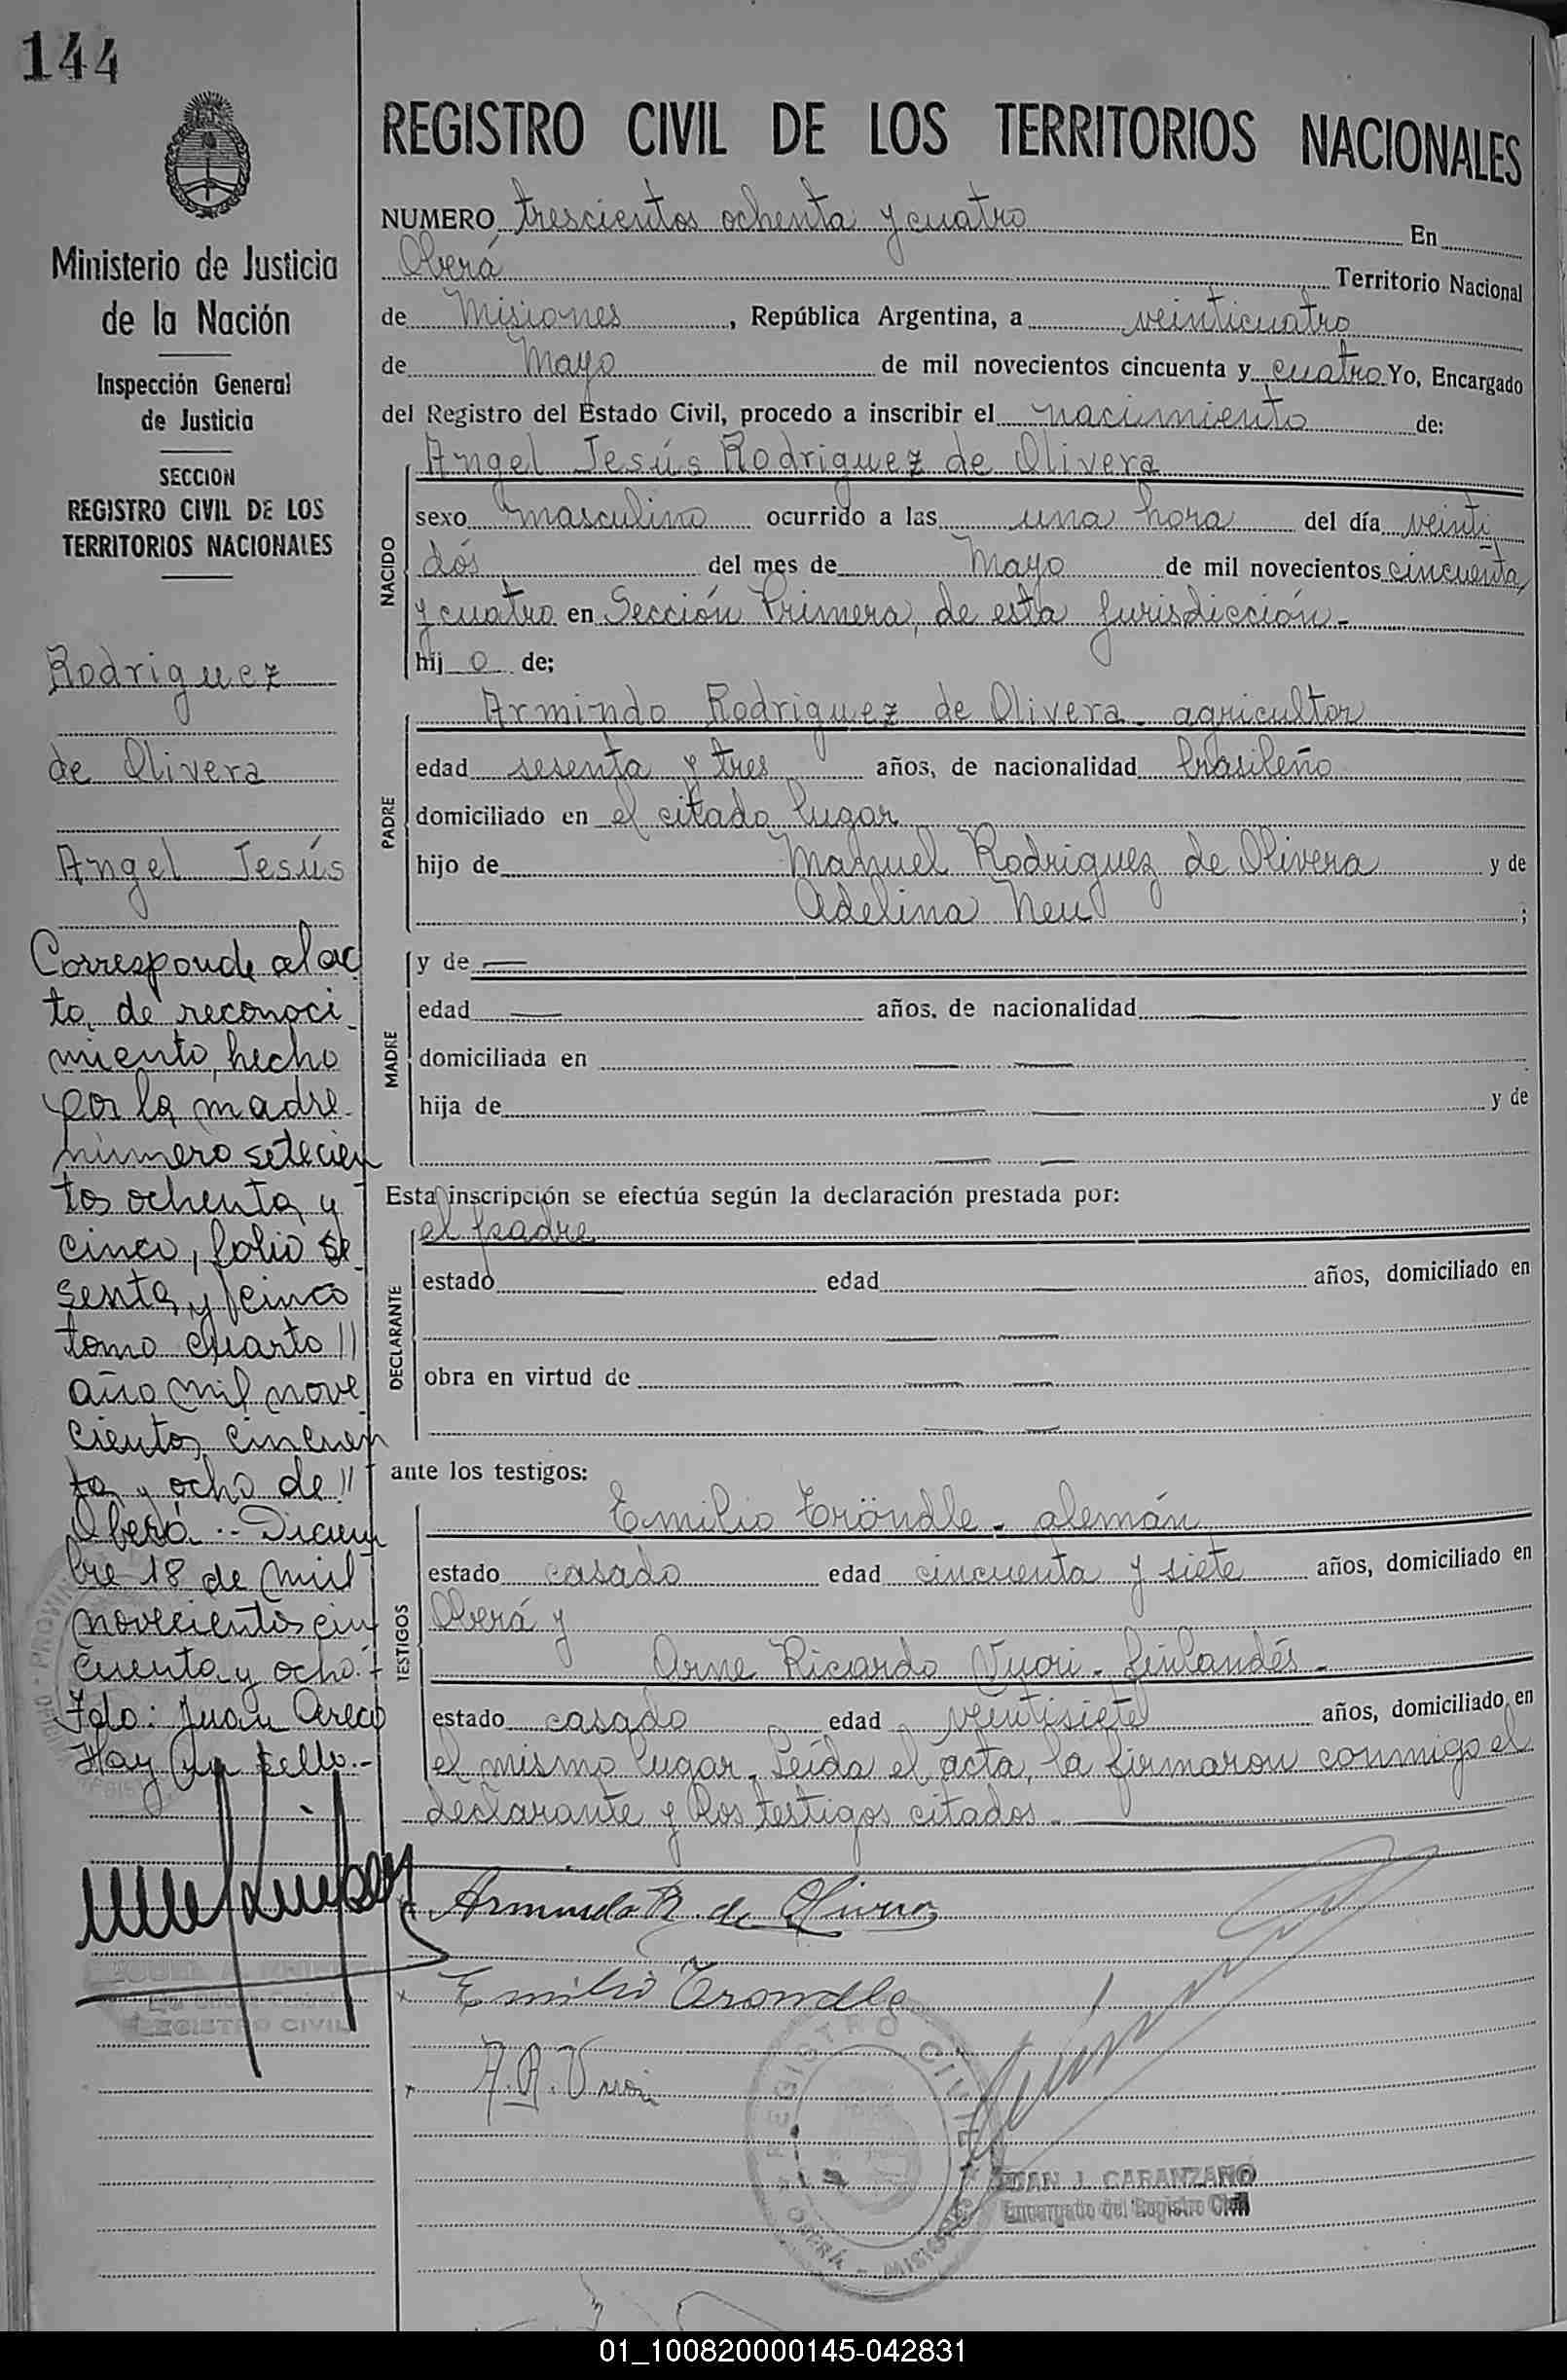 144
REGISTRO CIVIL DE LOS TERRITORIOS NACIONALES
Ministerio de Justicia
de la Nación
Inspección General
de Justicia
SECCION
REGISTRO CIVIL DE LOS
TERRITORIOS NACIONALES
Rodriguez
de Olivera
Angel Jesús
Corresponde al ac
to de reconoci
miento, hecho
por la madre
número setecien
tos ochenta y
cinco, folio se
senta y cinco
tomo cuarto //
año mil nove
cientos cincuen
ta y ocho de //
Oberá.- Diciem
bre 18 de mil
novecientos cin
cuenta y ocho.-
Fdo: Juan Areco
Hay un sello.-
REGISTRO CIVIL
NUMERO trescientos ochenta y cuatro En
Oberá Territorio Nacional
de Misiones, República Argentina, a veinticuatro
de Mayo de mil novecientos cincuenta y cuatro Yo, Encargado
del Registro del Estado Civil, procedo a inscribir el nacimiento de:
NACIDO
Angel Jesús Rodriguez de Olivera
sexo masculino ocurrido a las una hora del día veinti
dós del mes de Mayo de mil novecientos cincuenta
y cuatro en Sección Primera, de esta Jurisdicción.-
hij o de;
PADRE
Armindo Rodriguez de Olivera - agricultor
edad sesenta y tres años, de nacionalidad brasileño
domiciliado en el citado lugar
hijo de Manuel Rodriguez de Olivera y de
Adelina Neu ;
MADRE
y de —
edad — años, de nacionalidad —
domiciliada en — —
hija de — — y de
— —
Esta inscripción se efectúa según la declaración prestada por:
DECLARANTE
el padre
estado — edad — años, domiciliado en
— —
obra en virtud de — —
— —
ante los testigos:
TESTIGOS
Emilio Tröndle - alemán
estado casado edad cincuenta y siete años, domiciliado en
Oberá y
Arne Ricardo Vuori - finlandés -
estado casado edad veintisiete años, domiciliado en
el mismo lugar. Leída el acta, la firmaron conmigo el
declarante y los testigos citados.-
Armindo R. de Olivera
Emilio Tröndle
A. R. Vuori
REGISTRO CIVIL
OBERÁ - MISIONES
JUAN J. CARANZANO
Encargado del Registro Civil
01_100820000145-042831